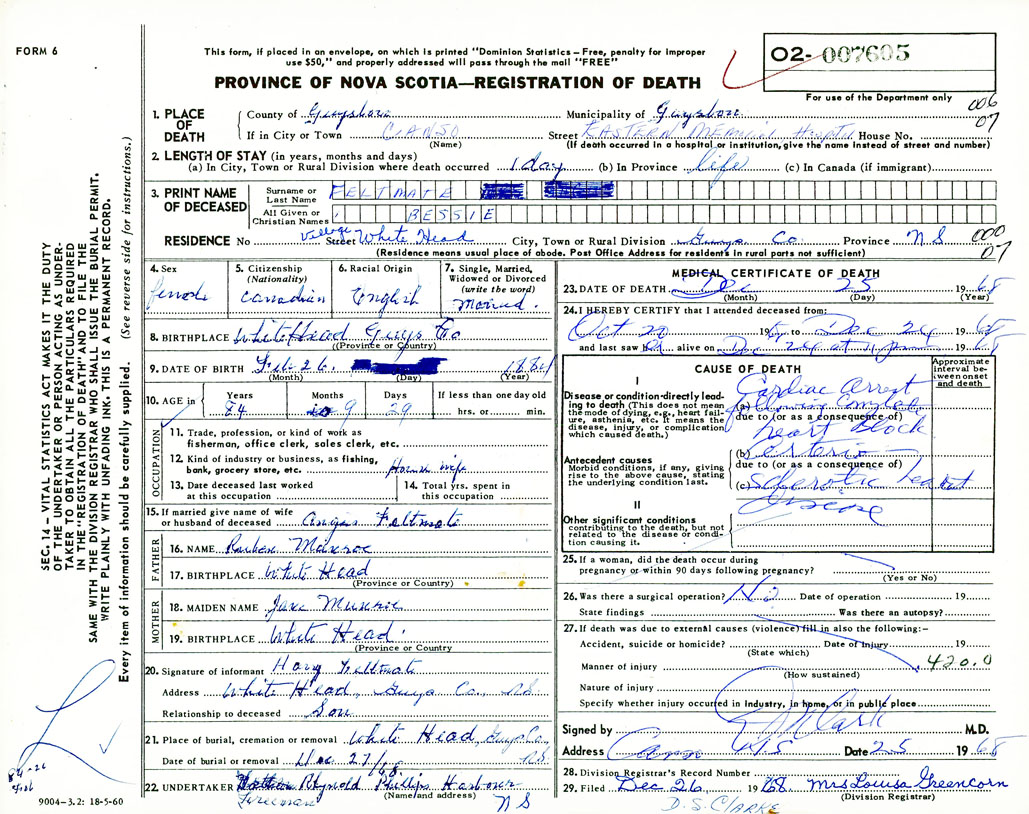 FORM 6
This form, if placed in an envelope, on which is printed "Dominion Statistics – Free, penalty for improper
use $50," and properly addressed will pass through the mail "FREE"
PROVINCE OF NOVA SCOTIA—REGISTRATION OF DEATH
O2- 007695
For use of the Department only
006
07
1. PLACE OF DEATH
County of Guysboro Municipality of Guysboro
If in City or Town CANSO Street EASTERN MEMORIAL House No.
(Name) (If death occurred in a hospital or institution, give the name instead of street and number)
2. LENGTH OF STAY (in years, months and days)
(a) In City, Town or Rural Division where death occurred 1 day (b) In Province life (c) In Canada (if immigrant)
3. PRINT NAME OF DECEASED
Surname or Last Name FELTMATE
All Given or Christian Names BESSIE
RESIDENCE No Village Street White Head City, Town or Rural Division Guys Co. Province NS
000
07
(Residence means usual place of abode. Post Office Address for residents in rural parts not sufficient)
4. Sex
female
5. Citizenship (Nationality)
Canadian
6. Racial Origin
English
7. Single, Married, Widowed or Divorced (write the word)
Married.
8. BIRTHPLACE White Head Guys Co
(Province or Country)
9. DATE OF BIRTH Feb 26. 1884
(Month) (Day) (Year)
10. AGE in Years Months Days If less than one day old
84 9 29 hrs. or min.
OCCUPATION
11. Trade, profession, or kind of work as
fisherman, office clerk, sales clerk, etc.
12. Kind of industry or business, as fishing,
bank, grocery store, etc. House wife
13. Date deceased last worked
at this occupation
14. Total yrs. spent in
this occupation
15. If married give name of wife
or husband of deceased Angus Feltmate
FATHER
16. NAME Reuben Munroe
17. BIRTHPLACE White Head
(Province or Country)
MOTHER
18. MAIDEN NAME Jane Munroe
19. BIRTHPLACE White Head.
(Province or Country
20. Signature of informant Feltmate
Address White Head, Guys Co, NS
Relationship to deceased Son
21. Place of burial, cremation or removal White Head, Guys Co.
NS
Date of burial or removal Dec 27/68.
22. UNDERTAKER Reynold Phillips Harbour
(Name and address)
Freeman NS
9004—3.2: 18-5-60
SEC. 14 – VITAL STATISTICS ACT MAKES IT THE DUTY
OF THE UNDERTAKER OR PERSON ACTING AS UNDER-
TAKER TO OBTAIN ALL THE PARTICULARS REQUIRED
IN THE "REGISTRATION OF DEATH" AND TO FILE THE
SAME WITH THE DIVISION REGISTRAR WHO SHALL ISSUE THE BURIAL PERMIT.
WRITE PLAINLY WITH UNFADING INK. THIS IS A PERMANENT RECORD.
Every item of information should be carefully supplied. (See reverse side for instructions.)
MEDICAL CERTIFICATE OF DEATH
23. DATE OF DEATH Dec 25 1968
(Month) (Day) (Year)
24. I HEREBY CERTIFY that I attended deceased from:
Oct 20 19 to Dec 24 1968
and last saw alive on Dec 24 at 11 pm 1968
CAUSE OF DEATH
Approximate interval between onset and death
I
Disease or condition directly leading to death (This does not mean the mode of dying, e.g., heart failure, asthenia, etc. It means the disease, injury, or complication which caused death.)
Cardiac Arrest
(a) following
due to (or as a consequence of)
heart block
Antecedent causes
Morbid conditions, if any, giving rise to the above cause, stating the underlying condition last.
(b) arterio –
due to (or as a consequence of)
(c) sclerotic heart
disease
II
Other significant conditions
contributing to the death, but not related to the disease or condition causing it.
25. If a woman, did the death occur during
pregnancy or within 90 days following pregnancy?
(Yes or No)
26. Was there a surgical operation? No Date of operation 19
State findings Was there an autopsy?
27. If death was due to external causes (violence) fill in also the following:–
Accident, suicide or homicide? Date of Injury 19
(State which)
Manner of injury 420.0
(How sustained)
Nature of injury
Specify whether injury occurred in Industry, in home, or in public place
Signed by M.D.
Address Canso N.S Date 25 1968
28. Division Registrar's Record Number
29. Filed Dec 26 1968 Mrs Louisa Greencorn
(Division Registrar)
D. S. CLARKE